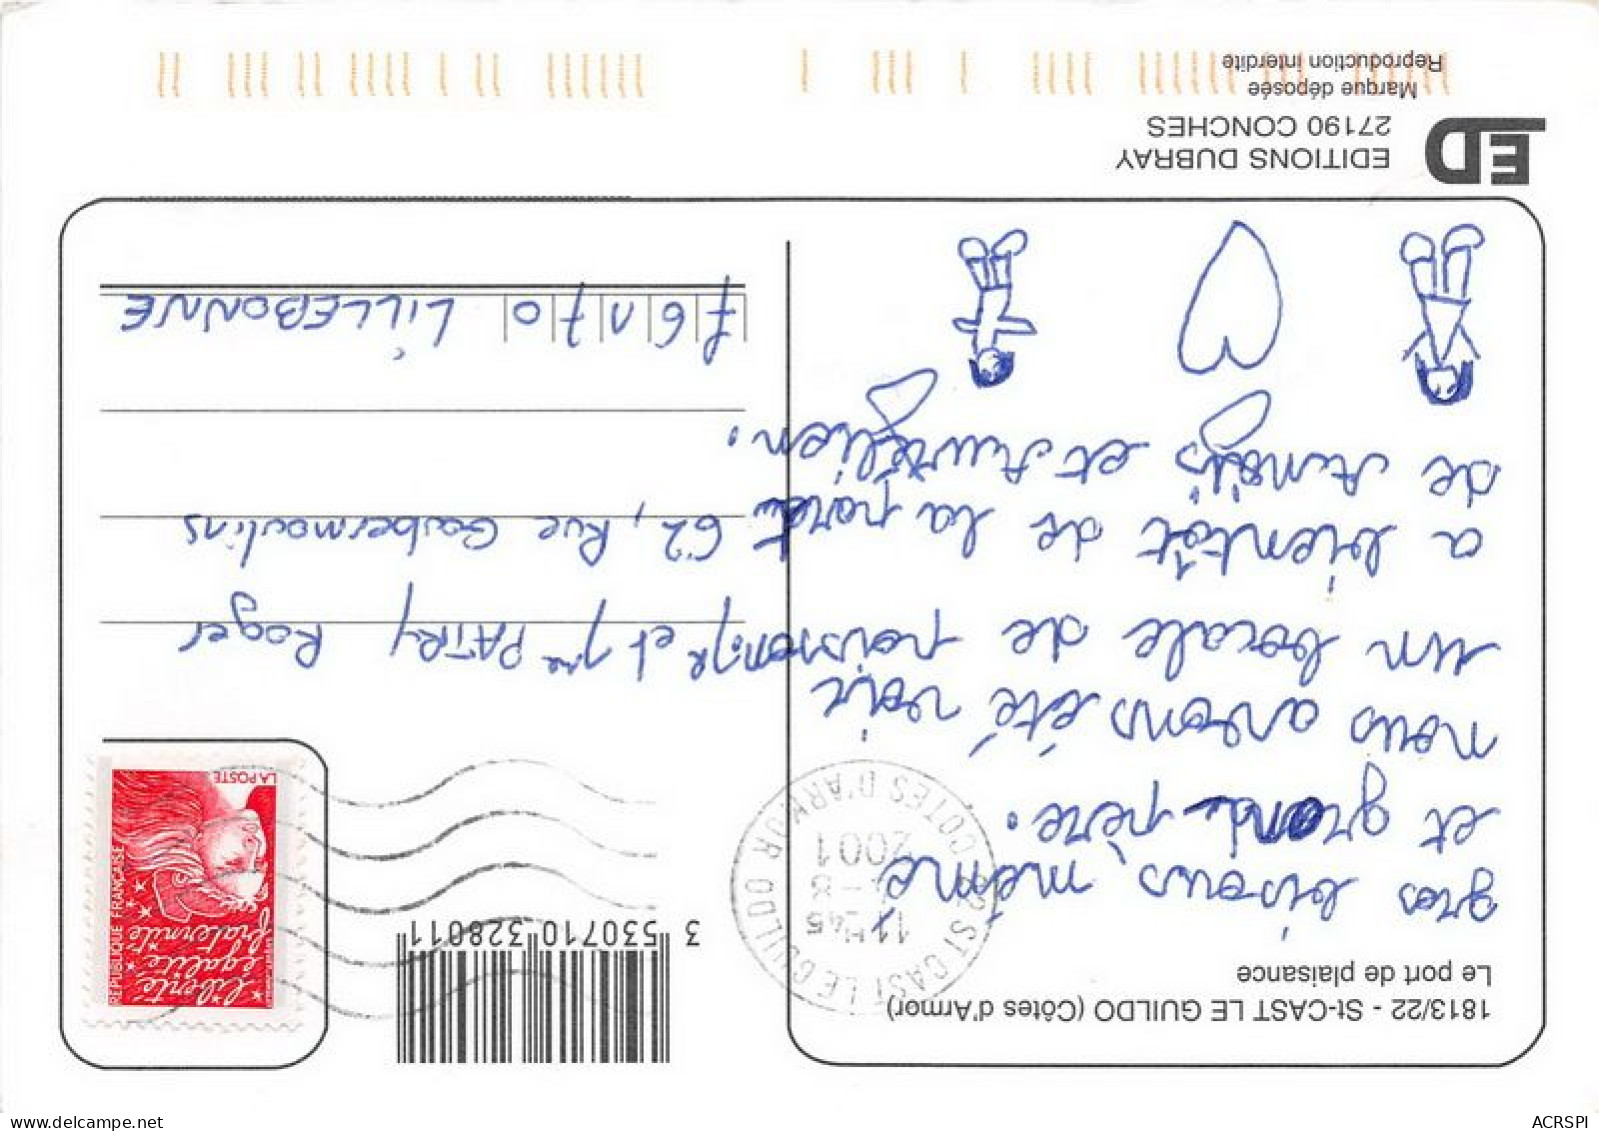 1813/22 - St-CAST LE GUILDO (Côtes d'Armor)
Le port de plaisance
gros bisous, mémé
et grand-père.
nous avons été voir
un bocale de poisson.
a bientôt de la part
de Anaïs et Aurélien.
3 530710 328011
RÉPUBLIQUE FRANÇAISE
liberté
égalité
fraternité
LA POSTE
ST CAST LE GUILDO
COTES D'ARMOR
11H45
2001
Mr et Mme PATRY Roger
62, Rue Goubermoulins
76170 LILLEBONNE
ED
EDITIONS DUBRAY
27190 CONCHES
Marque déposée
Reproduction interdite
ACRSPI